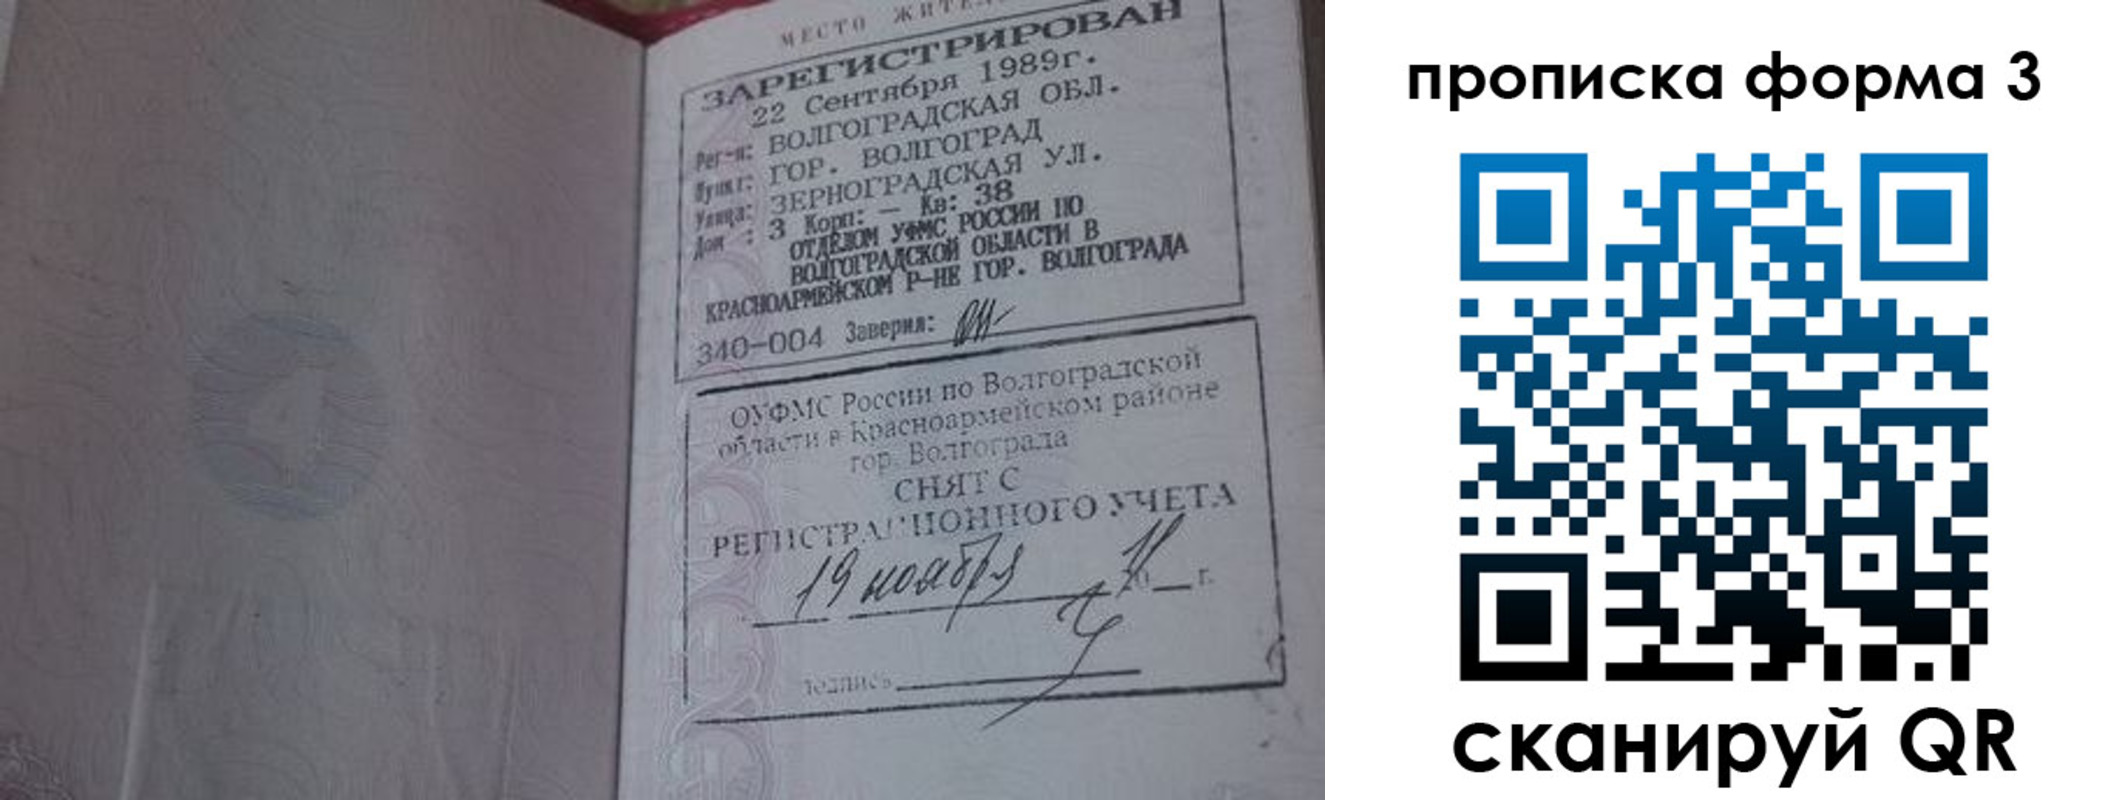 МЕСТО ЖИТЕЛ
ЗАРЕГИСТРИРОВАН
22 Сентября 1989г.
Рег-н: ВОЛГОГРАДСКАЯ ОБЛ.
Пункт: ГОР. ВОЛГОГРАД
Улица: ЗЕРНОГРАДСКАЯ УЛ.
Дом : 3 Корп: — Кв: 38
ОТДЕЛОМ УФМС РОССИИ ПО
ВОЛГОГРАДСКОЙ ОБЛАСТИ В
КРАСНОАРМЕЙСКОМ Р-НЕ ГОР. ВОЛГОГРАДА
340-004 Заверил:
ОУФМС России по Волгоградской
области в Красноармейском районе
гор. Волгограда
СНЯТ С
РЕГИСТРАЦИОННОГО УЧЕТА
19 ноября 20 11 г.
подпись
прописка форма 3
сканируй QR